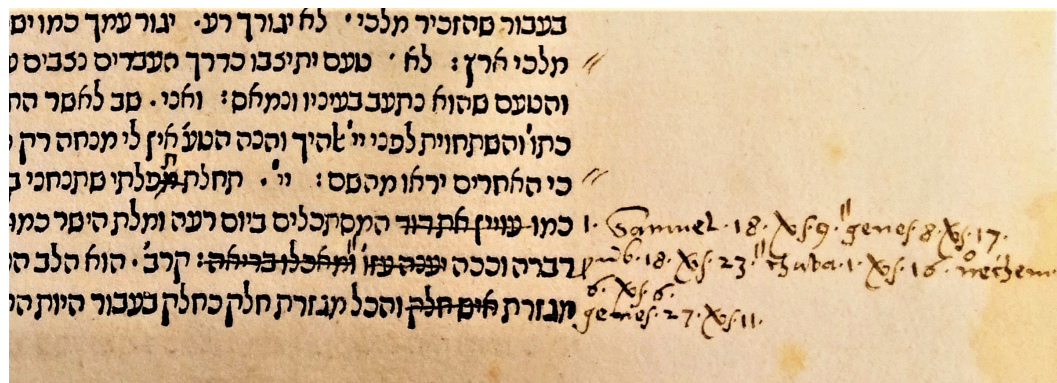 בעבור שהזכיר מלכי׳ לא יגורך רע. יגור עמך כמו
מלכי ארץ: לא׳ טעם יתיצבו כדרך העבדים נצבים
והטעם שהוא נתעב בעיניו ונמאס: ואני. שב לאשר
כתו׳ והשתחוית לפני יי׳ אהיך והנה הטע׳ אין לי מנחה רק
כי האחרים יראו מהשם: יי׳. תחלת תפלתי שתנחני
כמו עויין את דוד המסתכלים ביום רעה ומלת הישר כמו
דברה וככה יענה עזו ומאכלו בריאה: קרב׳. הוא הלב
מגזרת איש חלק והכל מגזרת חלק כחלק בעבור היות
1. Samuel. 18. vs. 9. genes. 8. vs. 17.
18. vs. 23 chaba. 1. vs. 16. nechem.
6. vs. 6.
genes. 27. vs. 11.